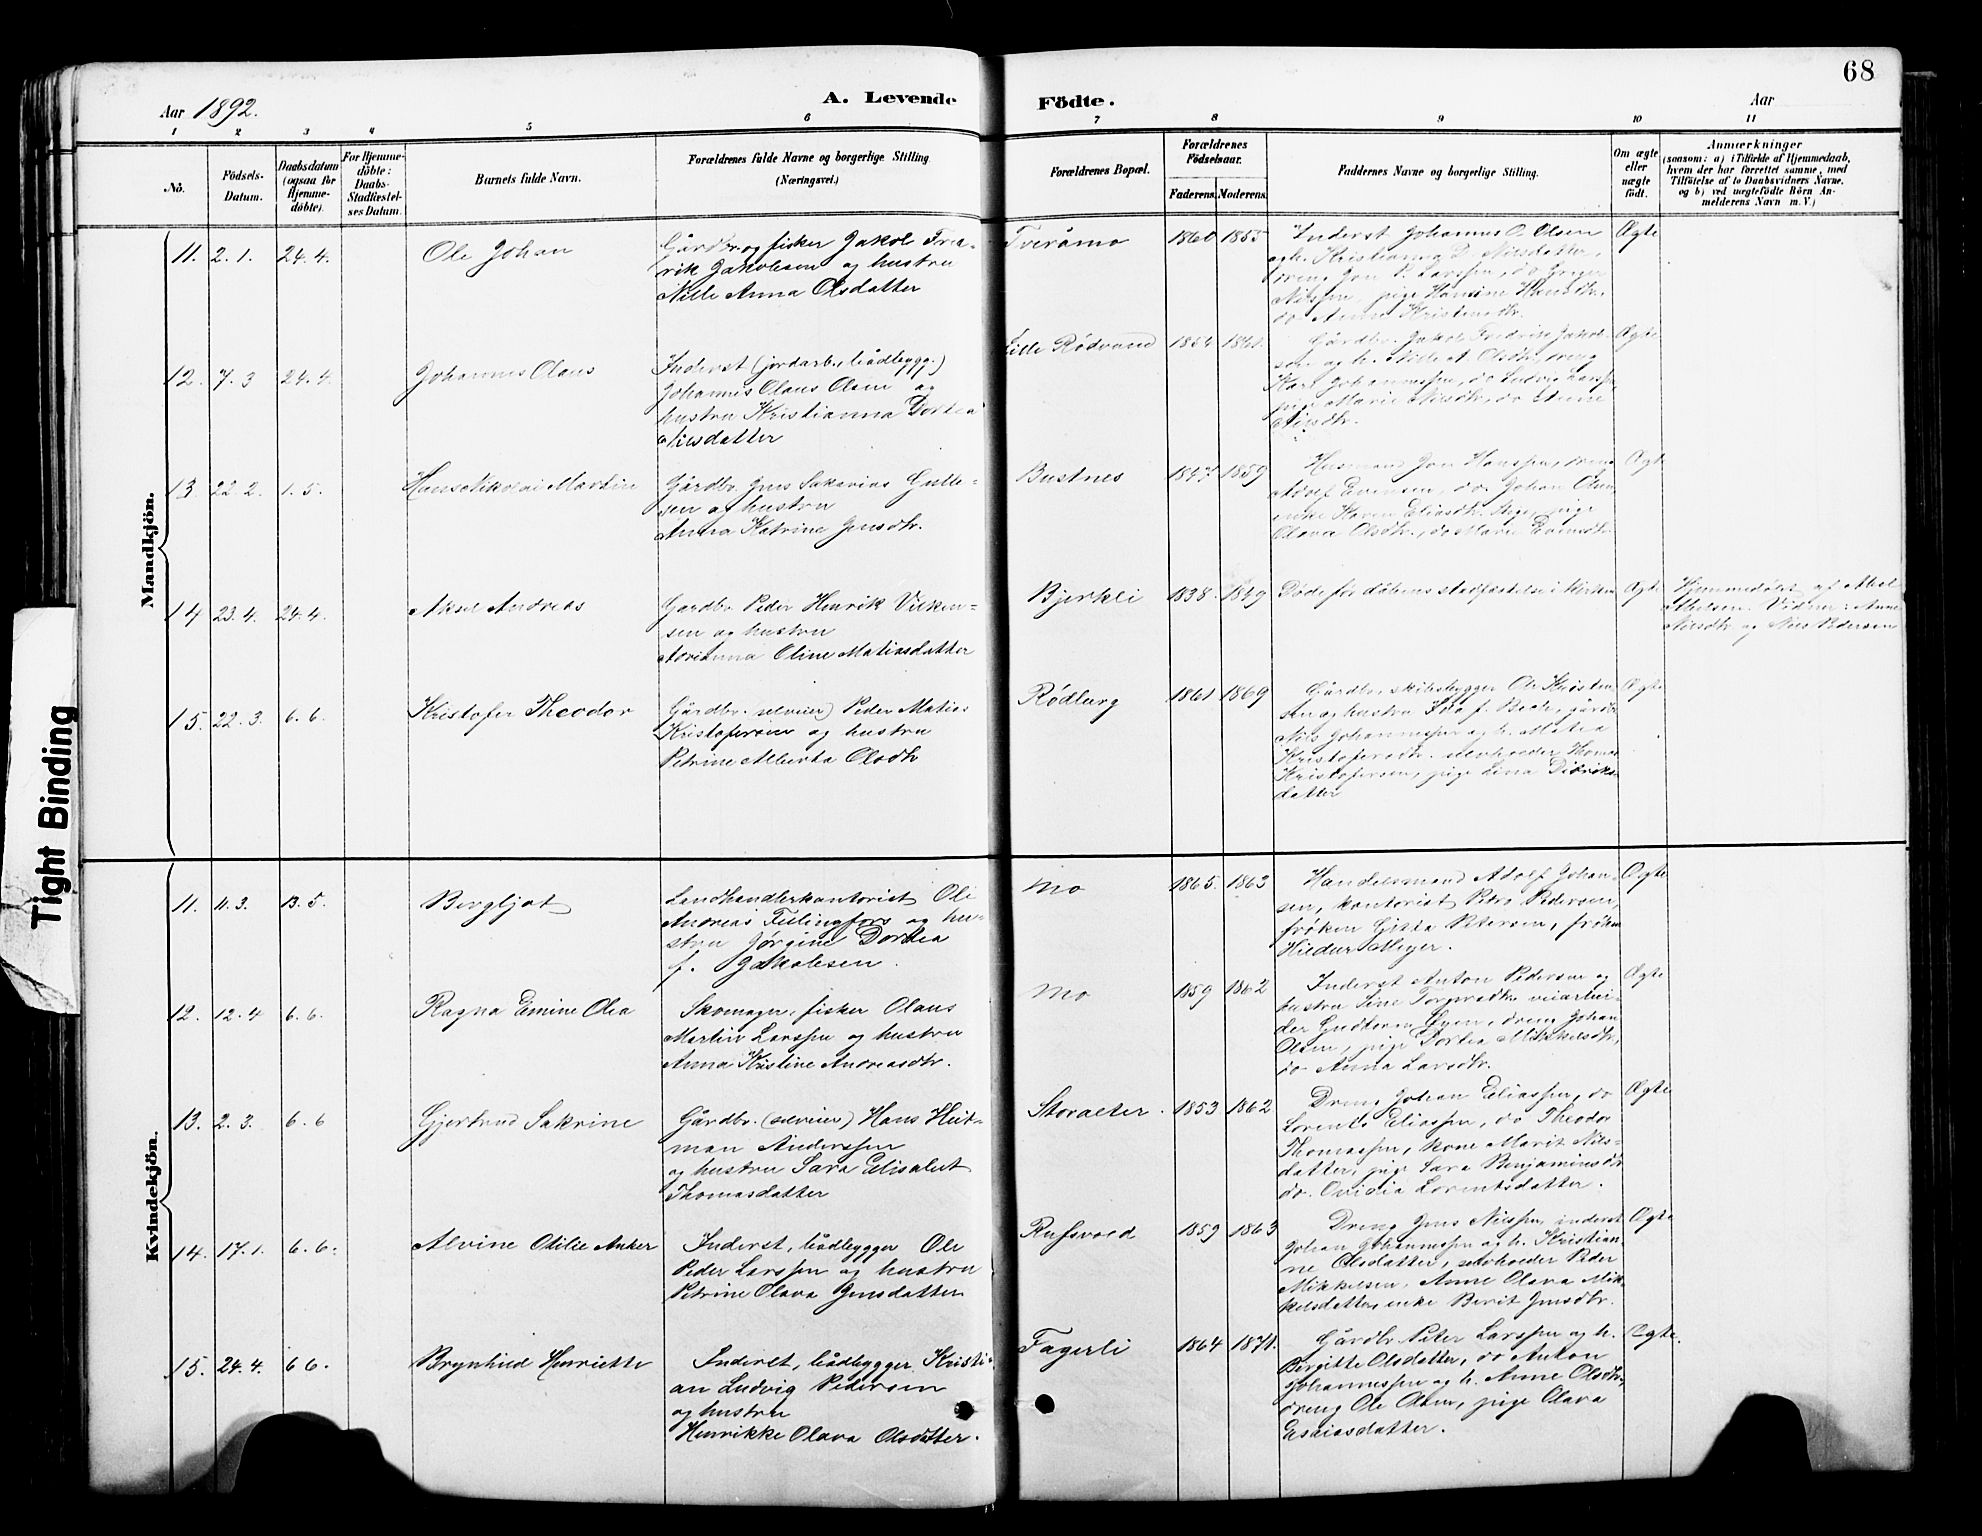 68
Aar 1892.
A. Levende Födte.
Aar
1 2 3 4 5 6 7 8 9 10 11
No.
Födsels-
Datum.
Daabsdatum
(ogsaa for
Hjemme-
döbte).
For Hjemme-
döbte:
Daabs-
Stadfæstel-
ses Datum.
Barnets fulde Navn.
Forældrenes fulde Navne og borgerlige Stilling
(Næringsvei.)
Forældrenes Bopæl.
Forældrenes
Födselsaar.
Faderens. Moderens.
Faddernes Navne og borgerlige Stilling.
Om ægte
eller
uægte
födt.
Anmærkninger
(saasom: a) i Tilfælde af Hjemmedaab,
hvem der har forrettet samme, med
Tilföielse af to Daabsvidners Navne,
og b) ved uægtefödte Börn An-
melderens Navn m. V.)
Mandkjön.
11. 2. 1. 24. 4. Ole Johan
Gårdbr. og fisker Jakob Fred-
rik Jakobsen og hustru
Nille Anna Olsdatter
Tveråmo 1860 1855
Inderst Johannes O. Olsen
og h. Kristianna D. Nilsdatter,
dreng Jon P. Larssen, do Jørger
Nilssen, pige Hansine Hansdtr.
do Anna Kristensdtr.
Ægte
12. 7. 3 24. 4. Johannes Olaus
Inderst (jordarb., bådbygg.)
Johannes Olaus Olsen og
hustru Kristianna Dortea
Nilsdatter
Lille Rødvand 1864 1861.
Gårdbr. Jakob Fredrik Jakob-
sen og h. Nille A. Olsdtr, dreng
Karl Johannessen, do Ludvig Larssen,
pige Marie Nilsdtr, do Anne
Nilsdtr.
Ægte
13 22. 2. 1. 5. Hans Nikolai Martin
Gårdbr. Jens Sakarias Gulle-
sen og hustru
Anna Katrine Jensdtr.
Bustnes 1847 1859
Husmand Jon Hanssen, dreng
Adolf Evensen, do. Johan Olsen,
enke Karen Eliasdtr. pige
Olava Olsdtr., do Marie Evensdtr.
Ægte
14 23. 4. 24. 4. Aksel Andreas
Gardbr Peder Henrik Vilken-
sen og hustru
Oline Matiasdatter
Bjerkli 1838 1849
Døde før dåbens stadfæstelse i kirken
Ægte
Hjemmedøbt af Abel
Abelsen. Vidner: Anne
Nilsdtr og Nils Pedersen
15. 22. 3. 6. 6. Kristofer Theodor
Gårdbr. (selveier) Peder Matias
Kristofersen og hustru
Petrine Alberta Olsdtr
Rødburg 1861 1869
Gårdbr., skibsbygger Ole Kristen-
sen og hustru Ida f. Bech, gårdbr
Nils Johannessen og h. Matea
Kristofersdtr. Thomas
Kristofersen, pige Lina Didriks-
datter
Ægte
Kvindekjön.
11. 11. 3. 13. 5. Bergljot
Landhandlerkontorist Ole
Andreas Fellingfors og hu-
stru Jørgine Dortea
f. Jakobsen.
Mo 1865. 1863
Handelsmand Adolf Johan-
sen, kontorist Petro Pedersen,
frøken Gitta Petersen, frøken
Hildur Meyer.
Ægte
12. 12. 4 6. 6. Ragna Emine Olea
Skomager, fisker Olaus
Martin Larssen og hustru
Anna Kristine Andreasdtr.
Mo 1859 1862
Inderst Anton Pedersen og
hustru Sine veiarbei-
der Guttorm dreng Johan
Olsen, pige Dortea Mikkelsdtr,
do Anna Larsdtr.
Ægte
13. 2. 3. 6. 6 Gjertrud Sakrine
Gårdbr. (selveier) Hans Heit-
man Anderssen
og hustru Sara Elisabet
Thomasdatter
Storalter. 1853. 1862.
Dreng Johan Eliassen, do
Lorents Eliassen, do Theodor
Thomassen, kone Marit Nils-
datter, pige Sara Benjaminsdtr
do. Ovidia Lorentsdatter.
Ægte
14. 17. 1. 6. 6. Alvine Otilie Anker
Inderst, bådbygger Ole
Peder Larssen og hustru
Petrine Olava Jensdatter
Rufsvold 1859 1863
Dreng Jens Nilssen, inderst
Johan Johannessen og h. Kristian-
ne Olsdatter, Peder
Mikkelsen, Anne Olava Mik-
kelsdatter, enke Berit Jensdtr.
Ægte
15. 24. 4. 6 6. Brynhild Henriette
Inderst, bådbygger Kristi-
an Ludvig Pedersen
og hustru
Henrikke Olava Olsdatter.
Fagerli 1864 1871.
Gårdbr. Peter Larssen og h.
Birgitte Olsdatter, do Anton
Johannessen og h. Anne Olsdtr,
dreng Ole Olsen, pige Olava
Esaiasdatter.
Ægte.
Tight Binding